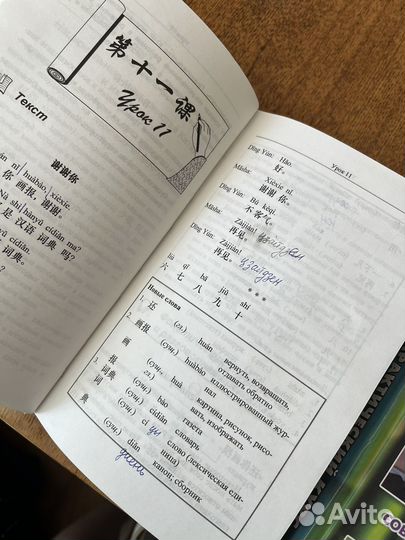 第十一课
Урок 11
Текст
谢谢你
huàbào, xièxie.
你 画报, 谢谢。
shì hànyǔ cídiǎn ma?
是 汉语 词典 吗?
cídiǎn.
词典。
Урок 11
Dīng Yún: Hǎo.
好。
Misha: Xièxie nǐ.
谢谢 你。
Dīng Yún: Bú kèqi.
不 客气。
Misha: Zàijiàn!
再见。
Dīng Yún: Zàijiàn!
再见。
* * *
liù qī bā jiǔ shí
六 七 八 九 十
Новые слова
1. 还 (гл.) huán вернуть, возвращать, отдавать обратно
2. 画报 (сущ.) huàbào иллюстрированный журнал
画 (сущ., гл.) huà картина, рисунок, рисовать, изображать
报 (сущ.) bào газета
3. 词典 (сущ.) cídiǎn словарь
词 (сущ.) cí слово (лексическая единица)
典 (сущ.) diǎn канон, сборник
Avito